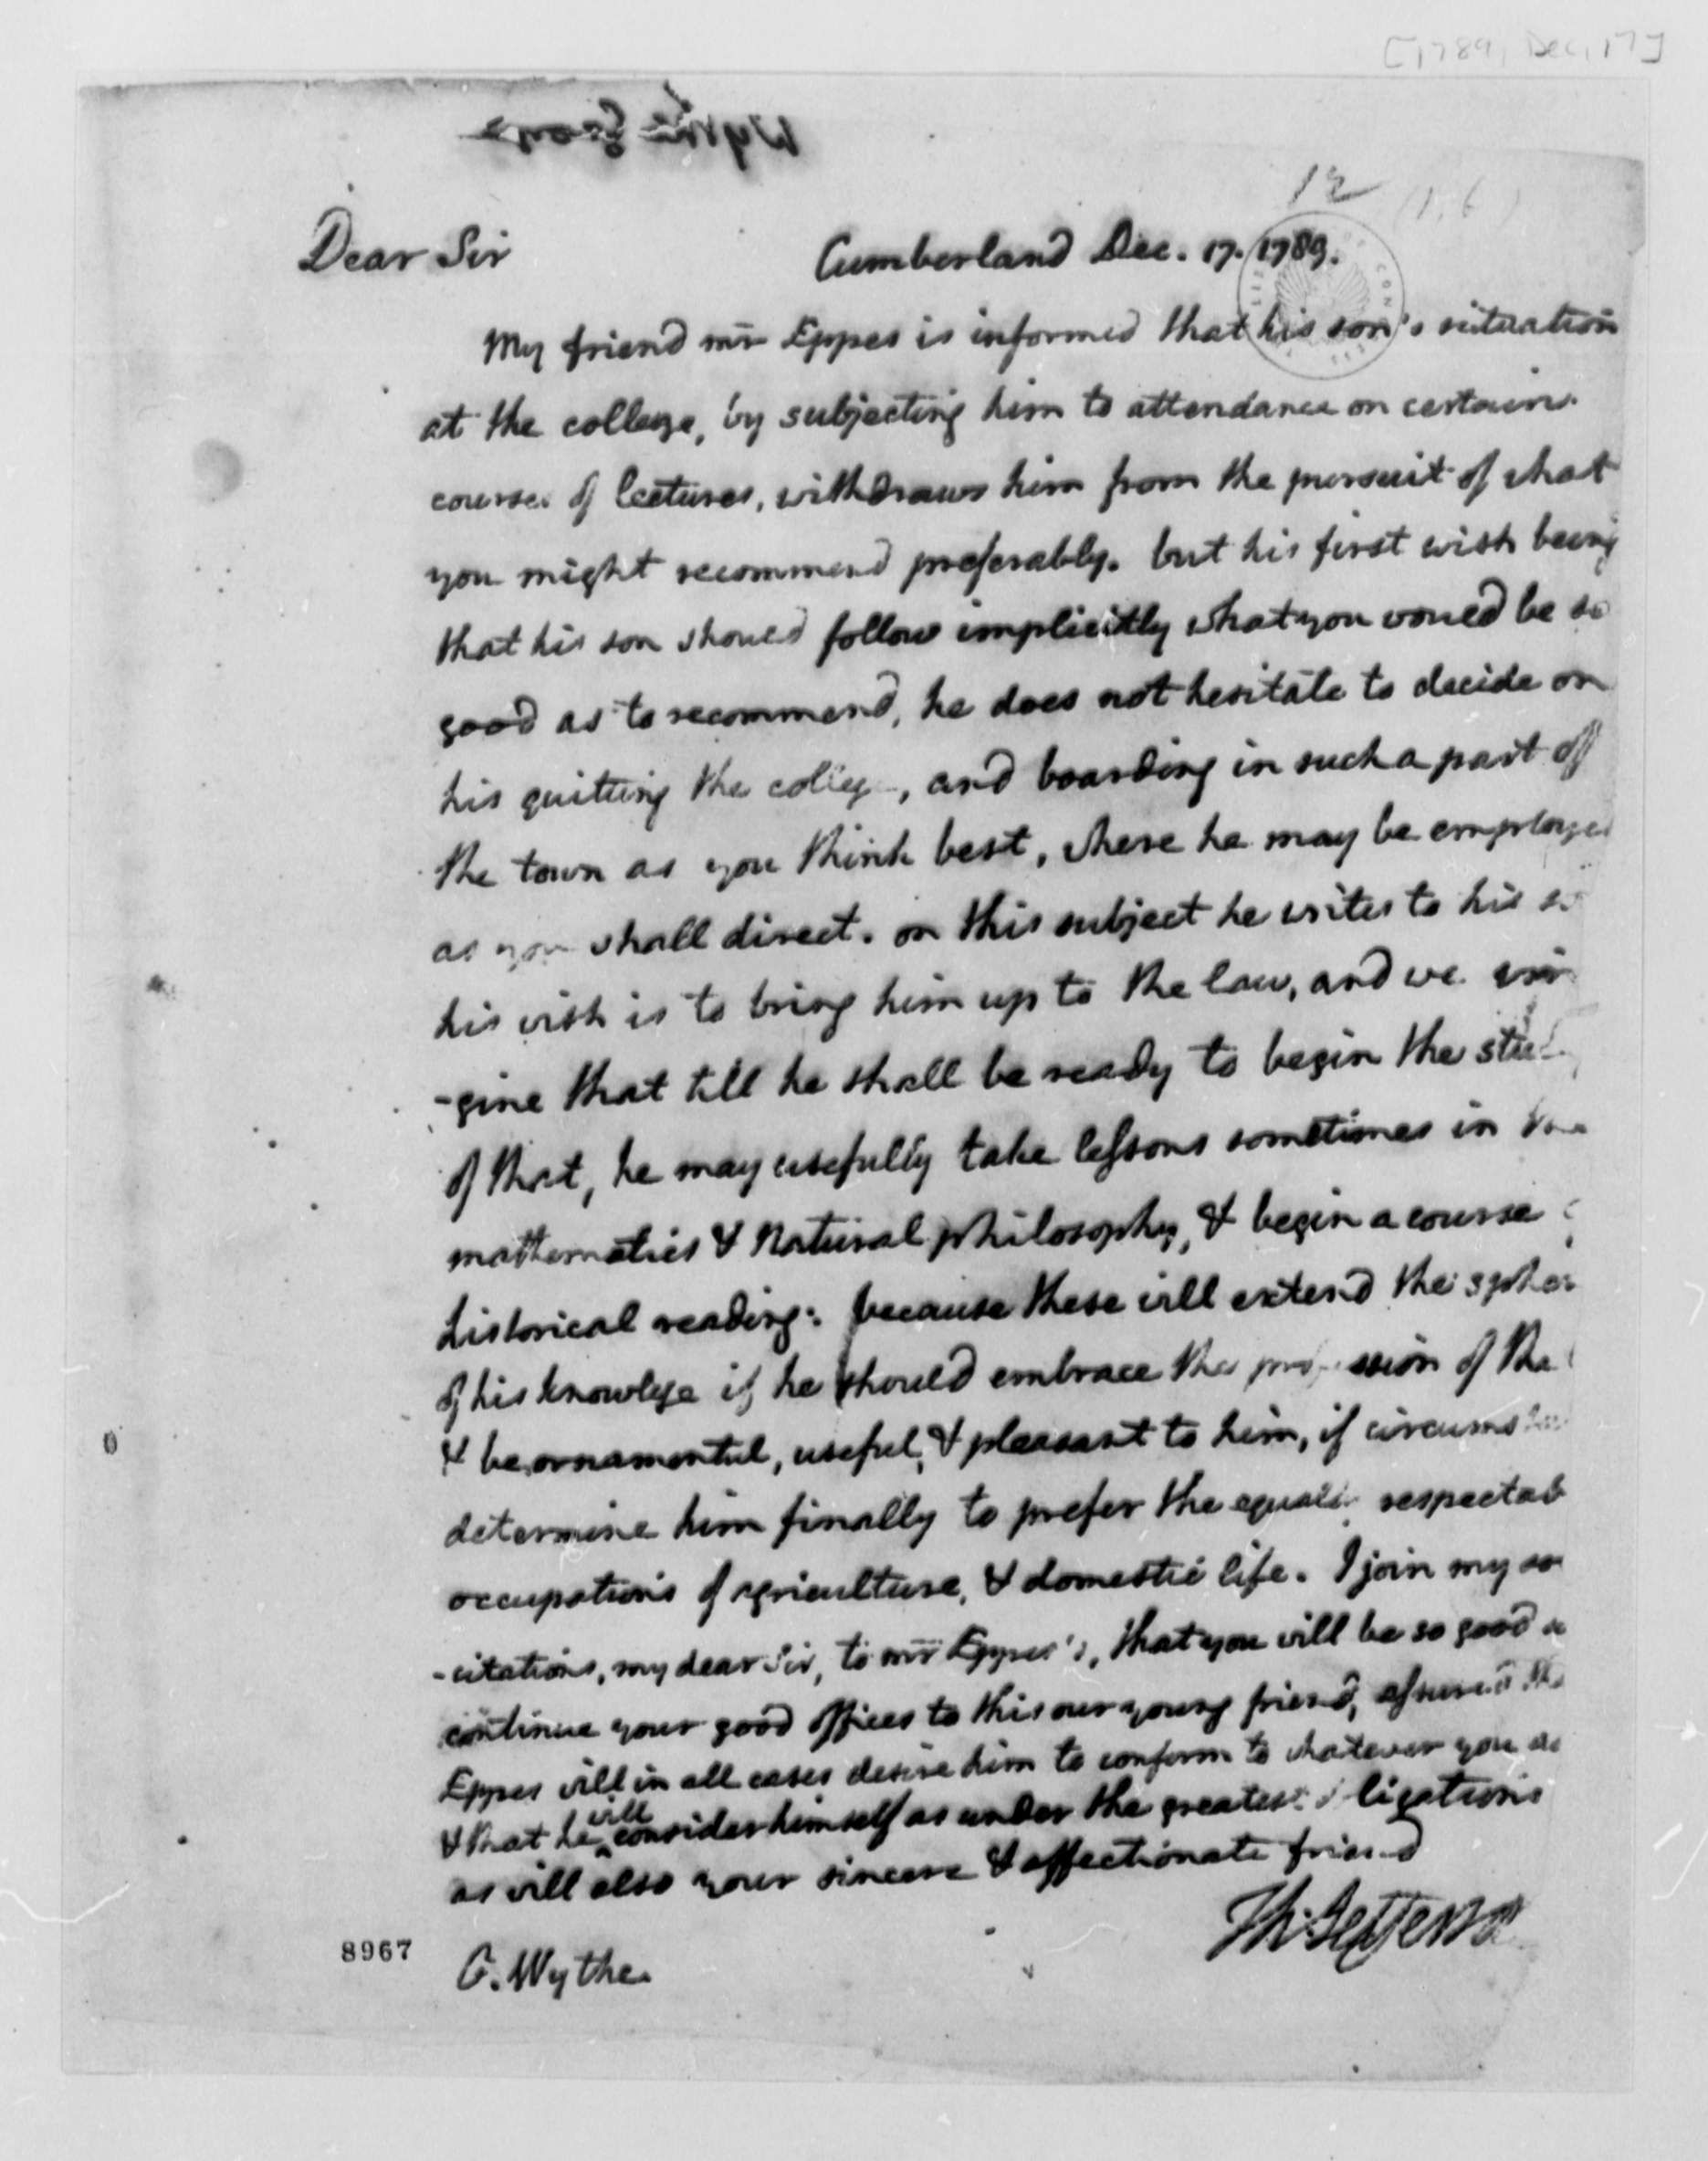 [1789, Dec. 17]
Wythe George
12
(1.6)
Dear Sir Cumberland Dec. 17. 1789.
My friend mr Eppes is informed that his son's situation
at the college, by subjecting him to attendance on certain
courses of lectures, withdraws him from the pursuit of what
you might recommend preferably. but his first wish being
that his son should follow implicitly what you would be so
good as to recommend, he does not hesitate to decide on
his quitting the colleg, and boarding in such a part of
the town as you think best, where he may be employed
as you shall direct. on this subject he writes to his
his wish is to bring him up to the law, and we
-gine that till he shall be ready to begin the
of that, he may usefully take lessons sometimes in the
mathematics & Natural philosophy, & begin a course
historical reading: because these will extend the sphere
of his knowlege if he should embrace the profession of the
& be ornamental, useful, & pleasant to him, if
determine him finally to prefer the equally respectab
occupations of agriculture, & domestic life. I join my
-citations, my dear Sir, to mr Eppes's, that you will be so good
continue your good offices to this our young friend, assured
Eppes will in all cases desire him to conform to whatever you
& that he will consider himself as under the greatest
as will also your sincere & affectionate friend
Th: Jefferson
8967
G. Wythe.